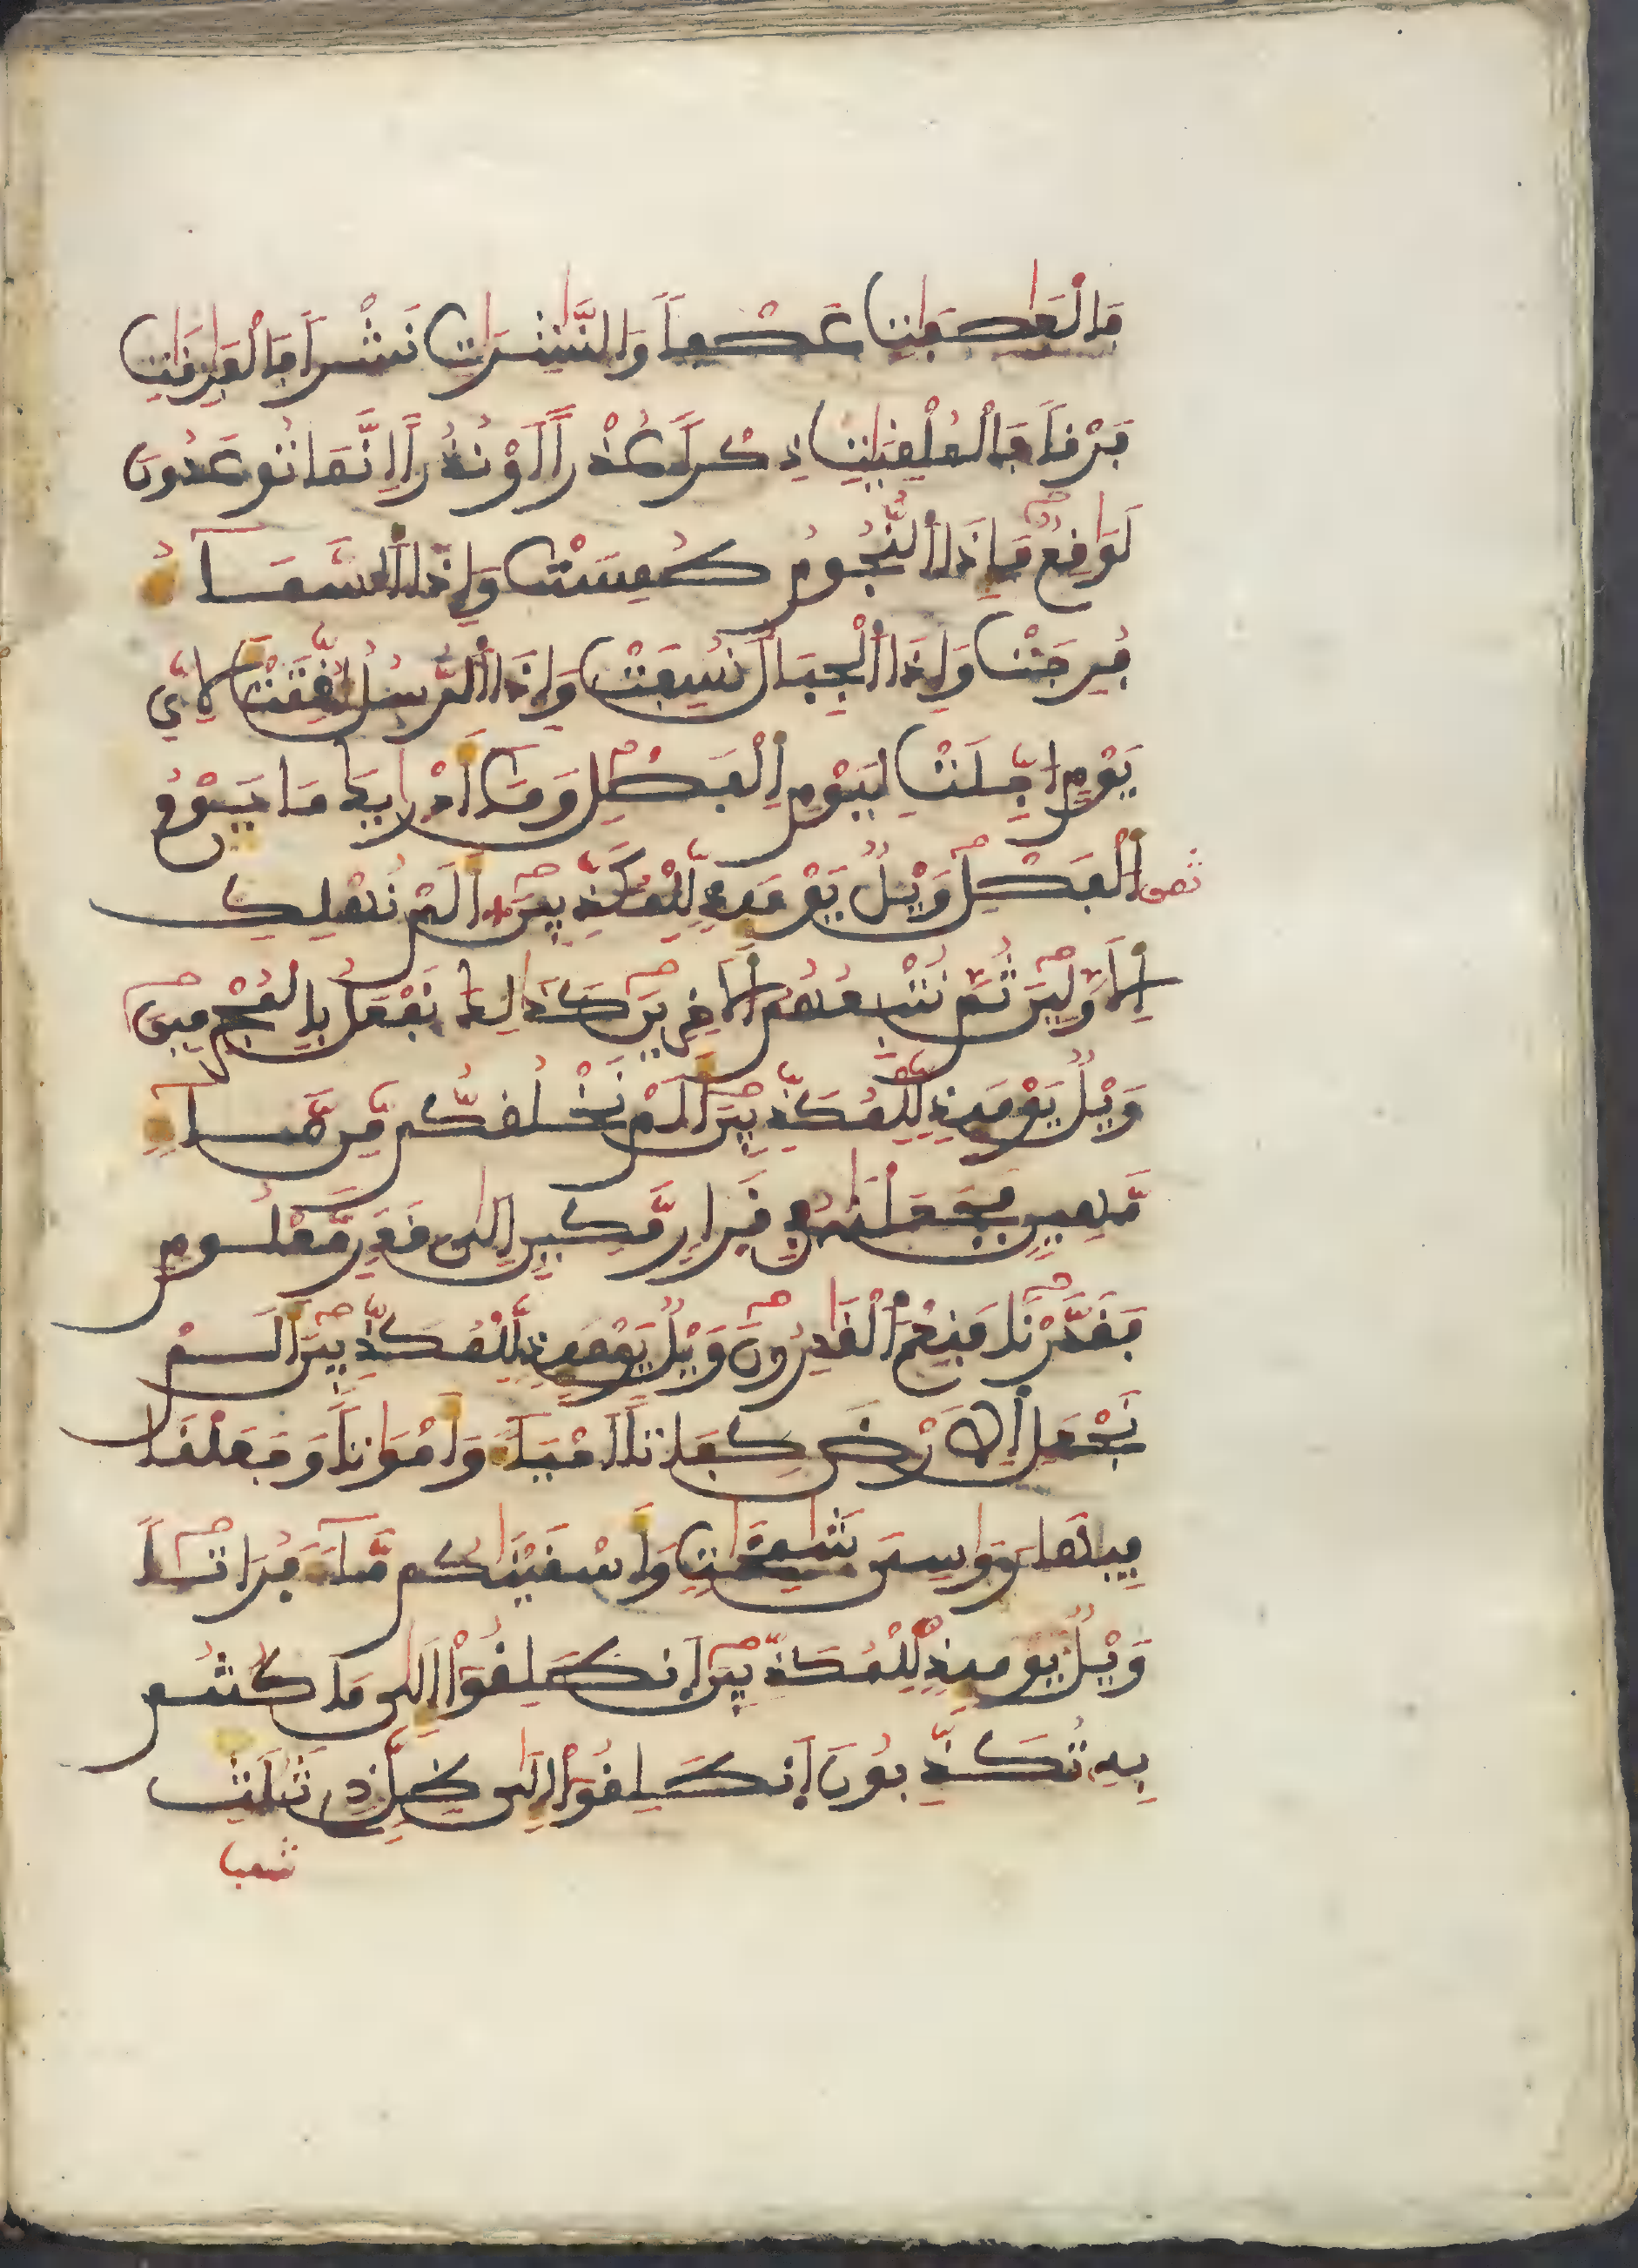 فَالْعَٰصِفَٰتِ عَصْفاً وَالنَّٰشِرَٰتِ نَشْراً فَالْفَٰرِقَٰتِ
فَرْقاً فَالْمُلْقِيَٰتِ ذِكْراً عُذْراً اَوْ نُذُراً اِنَّمَا تُوعَدُونَ
لَوَٰقِعٌ فَإِذَا اَلنُّجُومُ طُمِسَتْ وَإِذَا اَلسَّمَآءُ
فُرِجَتْ وَإِذَا اَلْجِبَالُ نُسِفَتْ وَإِذَا اَلرُّسُلُ أُقِّتَتْ لِأَيِّ
يَوْمٍ اجِّلَتْ لِيَوْمِ اِلْفَصْلِ وَمَآ أَدْرَىٰكَ مَا يَوْمُ
اُلْفَصْلِ وَيْلٌ يَوْمَئِذٍ لِّلْمُكَذِّبِينَ أَلَمْ نُهْلِكِ
نصف
اِلَاوَّلِينَ ثُمَّ نُتْبِعُهُمُ اُلَاخِرِينَ كَذَٰلِكَ نَفْعَلُ بِالْمُجْرِمِينَ
وَيْلٌ يَوْمَئِذٍ لِّلْمُكَذِّبِينَ أَلَمْ نَخْلُقكُّم مِّن مَّآءٍ
مَّهِينٍ فَجَعَلْنَٰهُ فِي قَرَارٍ مَّكِينٍ اِلَىٰ قَدَرٍ مَّعْلُومٍ
فَقَدَّرْنَا فَنِعْمَ اَلْقَٰدِرُونَ وَيْلٌ يَوْمَئِذٍ لِّلْمُكَذِّبِينَ أَلَمْ
نَجْعَلِ اِلَارْضَ كِفَاتاً اَحْيَآءً وَأَمْوَٰتاً وَجَعَلْنَا
فِيهَا رَوَٰسِيَ شَٰمِخَٰتٍ وَأَسْقَيْنَٰكُم مَّآءً فُرَاتاً
وَيْلٌ يَوْمَئِذٍ لِّلْمُكَذِّبِينَ اَنطَلِقُوٓاْ إِلَىٰ مَا كُنتُم
بِهِۦ تُكَذِّبُونَ اَنطَلِقُوٓاْ إِلَىٰ ظِلٍّ ذِي ثَلَٰثِ
شعب